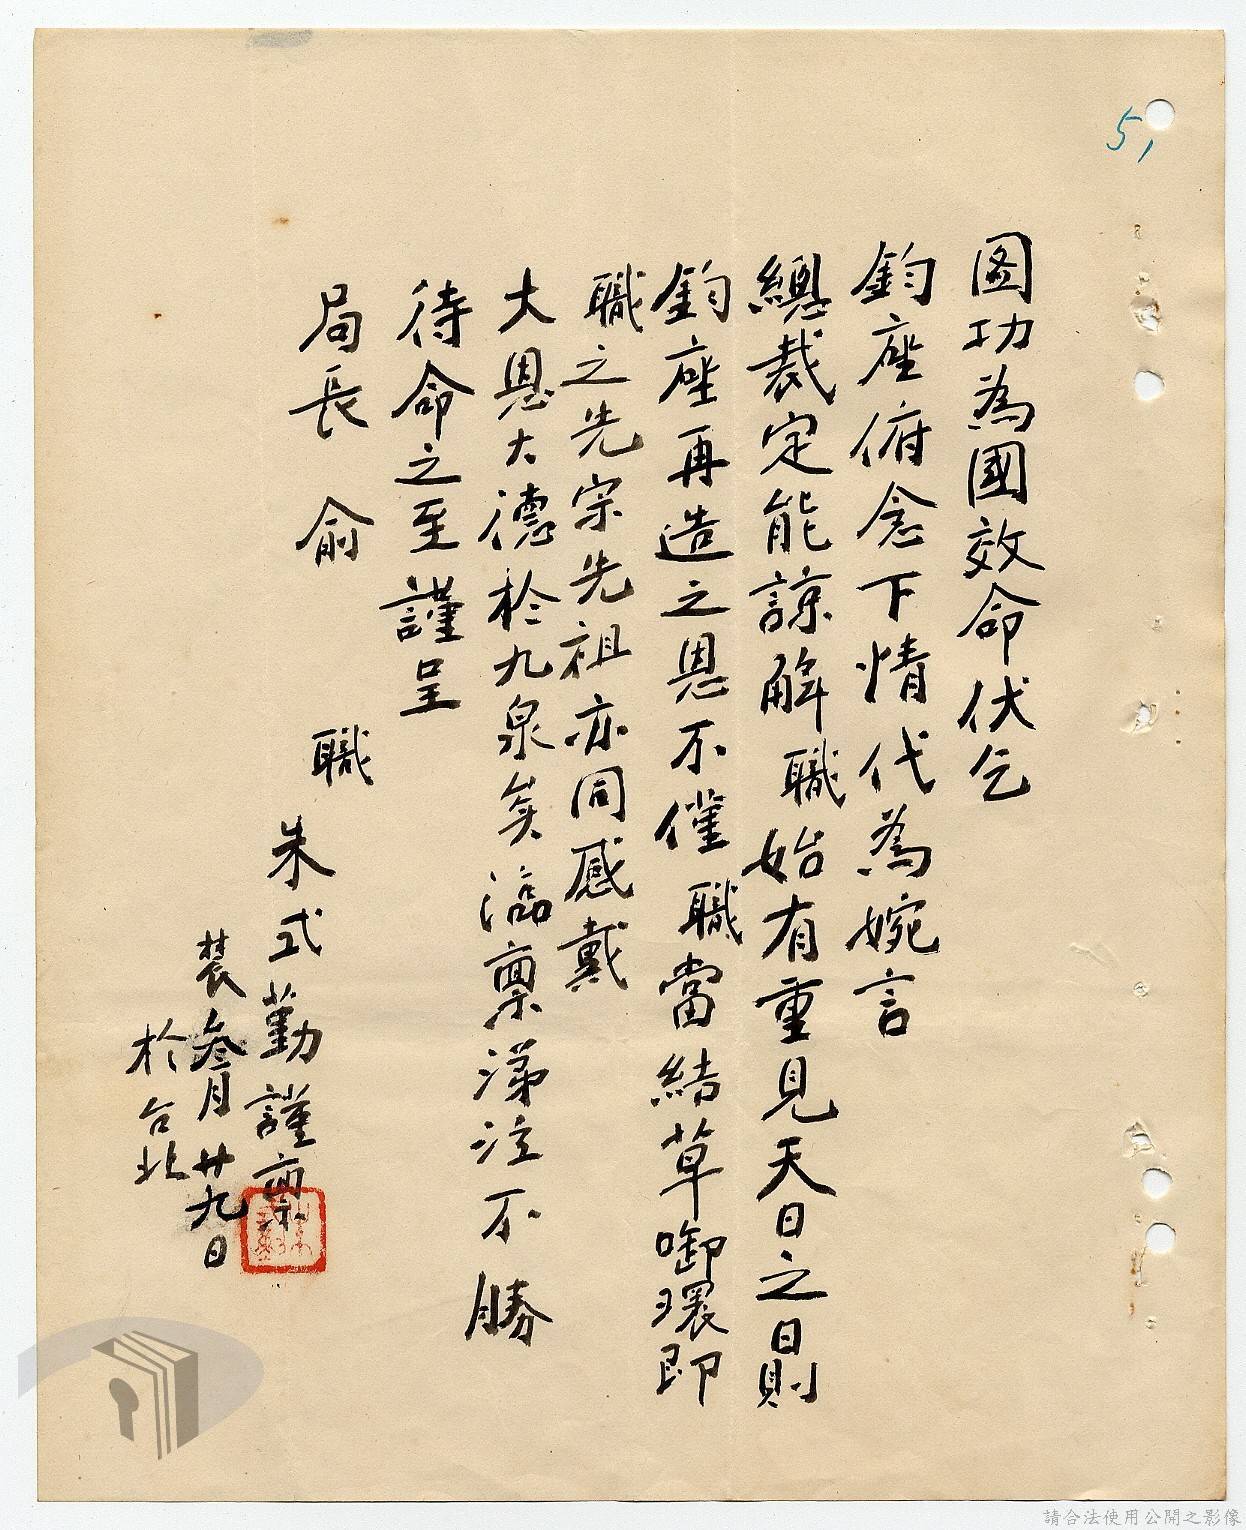 5,
圖功為國效命伏乞
鈞座俯念下情代為婉言
總裁定能諒解職始有重見天日之日則
鈞座再造之恩不僅職當結草啣環即
職之先宗先祖亦同感戴
大恩大德於九泉矣臨稟涕泣不勝
待命之至謹呈
局長 俞
職
朱式勤謹稟
叁月廿九日
於台北
請合法使用公開之影像